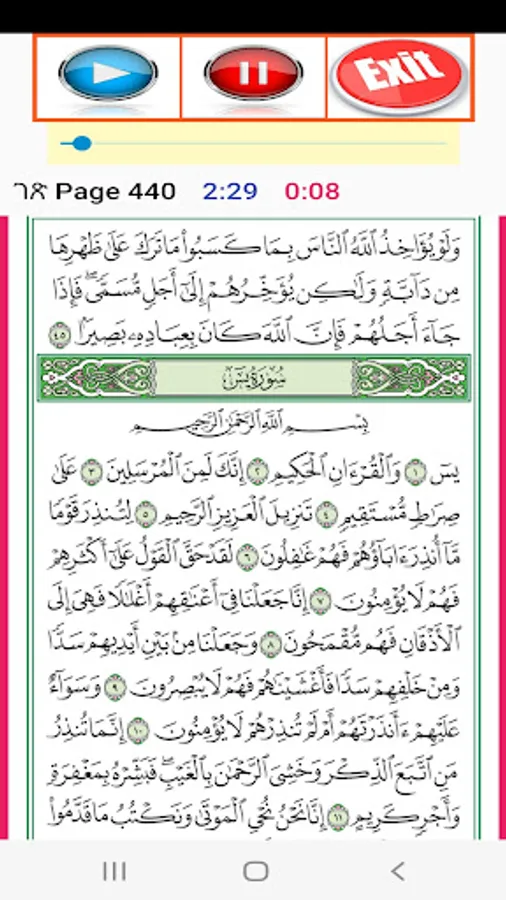 Exit
ገጽ Page 440 2:29 0:08
وَلَوْ يُؤَاخِذُ ٱللَّهُ ٱلنَّاسَ بِمَا كَسَبُوا۟ مَا تَرَكَ عَلَىٰ ظَهْرِهَا
مِن دَآبَّةٍ وَلَٰكِن يُؤَخِّرُهُمْ إِلَىٰٓ أَجَلٍ مُّسَمًّى ۖ فَإِذَا
جَآءَ أَجَلُهُمْ فَإِنَّ ٱللَّهَ كَانَ بِعِبَادِهِۦ بَصِيرًۢا ٤٥
سُورَةُ يسٓ
بِسْمِ ٱللَّهِ ٱلرَّحْمَٰنِ ٱلرَّحِيمِ
يسٓ ١ وَٱلْقُرْءَانِ ٱلْحَكِيمِ ٢ إِنَّكَ لَمِنَ ٱلْمُرْسَلِينَ ٣ عَلَىٰ
صِرَٰطٍ مُّسْتَقِيمٍ ٤ تَنزِيلَ ٱلْعَزِيزِ ٱلرَّحِيمِ ٥ لِتُنذِرَ قَوْمًا
مَّآ أُنذِرَ ءَابَآؤُهُمْ فَهُمْ غَٰفِلُونَ ٦ لَقَدْ حَقَّ ٱلْقَوْلُ عَلَىٰٓ أَكْثَرِهِمْ
فَهُمْ لَا يُؤْمِنُونَ ٧ إِنَّا جَعَلْنَا فِىٓ أَعْنَٰقِهِمْ أَغْلَٰلًا فَهِىَ إِلَى
ٱلْأَذْقَانِ فَهُم مُّقْمَحُونَ ٨ وَجَعَلْنَا مِنۢ بَيْنِ أَيْدِيهِمْ سَدًّا
وَمِنْ خَلْفِهِمْ سَدًّا فَأَغْشَيْنَٰهُمْ فَهُمْ لَا يُبْصِرُونَ ٩ وَسَوَآءٌ
عَلَيْهِمْ ءَأَنذَرْتَهُمْ أَمْ لَمْ تُنذِرْهُمْ لَا يُؤْمِنُونَ ١٠ إِنَّمَا تُنذِرُ
مَنِ ٱتَّبَعَ ٱلذِّكْرَ وَخَشِىَ ٱلرَّحْمَٰنَ بِٱلْغَيْبِ ۖ فَبَشِّرْهُ بِمَغْفِرَةٍ
وَأَجْرٍ كَرِيمٍ ١١ إِنَّا نَحْنُ نُحْىِ ٱلْمَوْتَىٰ وَنَكْتُبُ مَا قَدَّمُوا۟